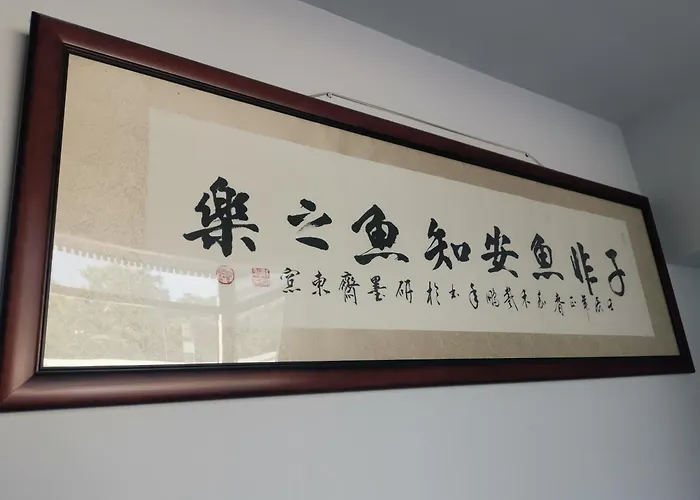 子非魚安知魚之樂
於研墨齋東窓